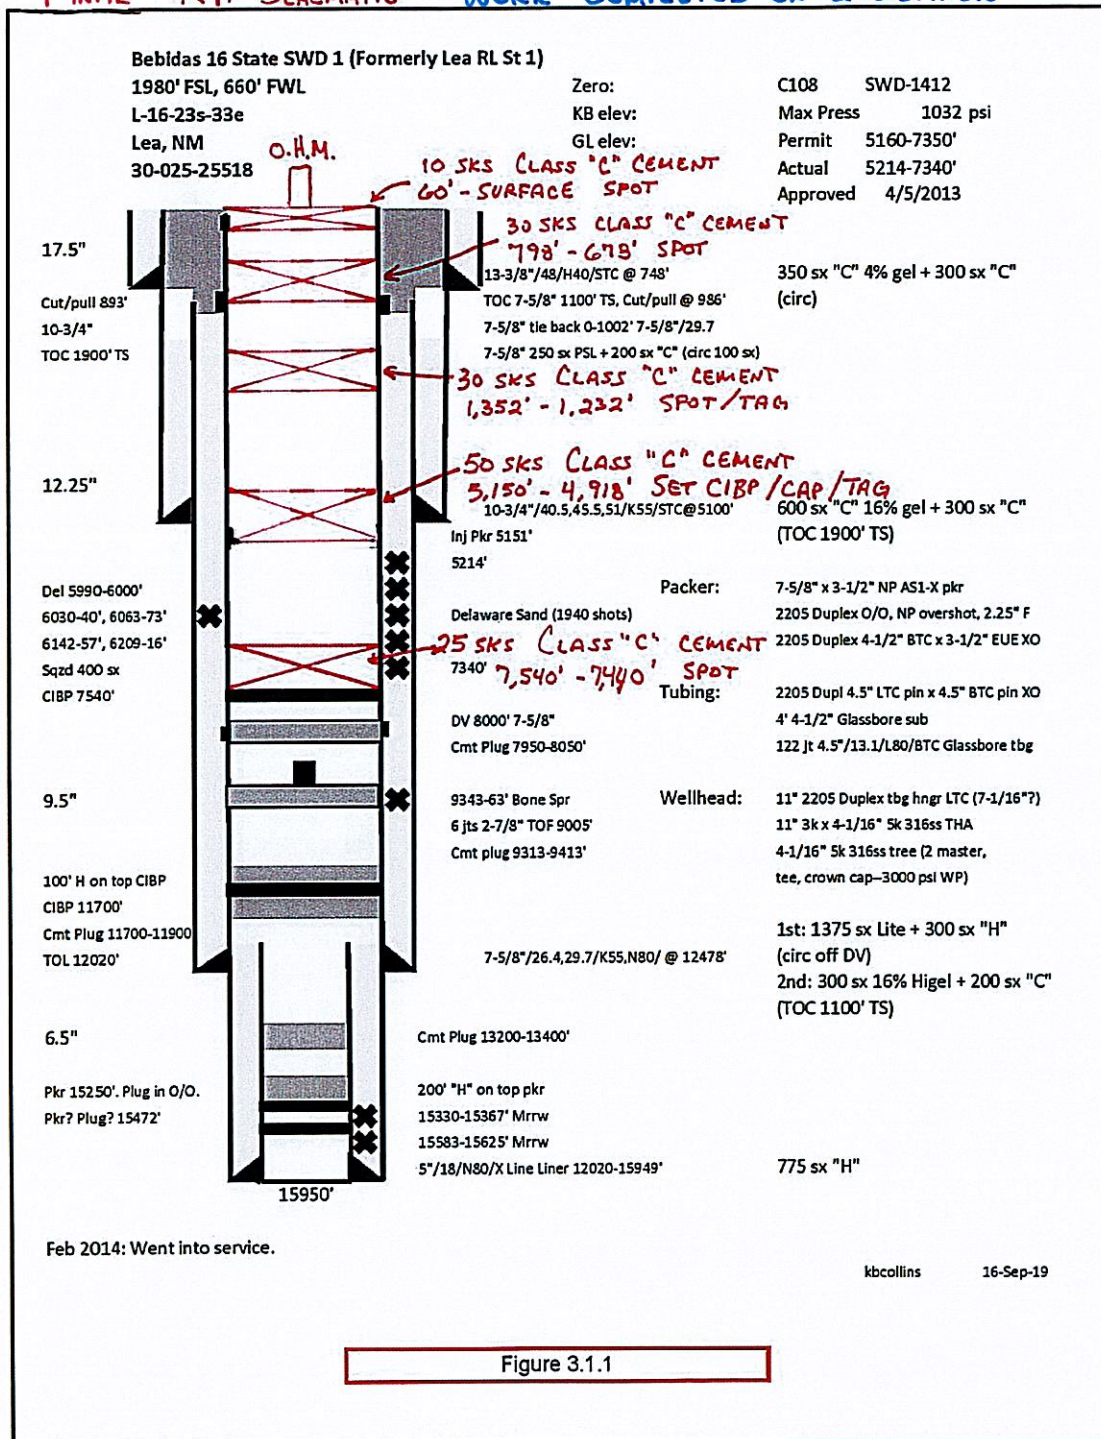 Bebidas 16 State SWD 1 (Formerly Lea RL St 1)
1980' FSL, 660' FWL
L-16-23s-33e
Lea, NM
30-025-25518
Zero:
KB elev:
GL elev:
C108 SWD-1412
Max Press 1032 psi
Permit 5160-7350'
Actual 5214-7340'
Approved 4/5/2013
O.H.M.
10 SKS CLASS "C" CEMENT
60' - SURFACE SPOT
30 SKS CLASS "C" CEMENT
798' - 678' SPOT
17.5"
13-3/8"/48/H40/STC @ 748'
350 sx "C" 4% gel + 300 sx "C"
(circ)
Cut/pull 893'
10-3/4"
TOC 1900' TS
TOC 7-5/8" 1100' TS, Cut/pull @ 986'
7-5/8" tie back 0-1002' 7-5/8"/29.7
7-5/8" 250 sx PSL + 200 sx "C" (circ 100 sx)
30 SKS CLASS "C" CEMENT
1,352' - 1,232' SPOT/TAG
50 SKS CLASS "C" CEMENT
5,150' - 4,918' SET CIBP/CAP/TAG
12.25"
10-3/4"/40.5,45.5,51/K55/STC@5100'
600 sx "C" 16% gel + 300 sx "C"
(TOC 1900' TS)
Inj Pkr 5151'
5214'
Del 5990-6000'
6030-40', 6063-73'
6142-57', 6209-16'
Sqzd 400 sx
CIBP 7540'
Delaware Sand (1940 shots)
25 SKS CLASS "C" CEMENT
7340' 7,540' - 7,440' SPOT
Packer: 7-5/8" x 3-1/2" NP AS1-X pkr
2205 Duplex O/O, NP overshot, 2.25" F
2205 Duplex 4-1/2" BTC x 3-1/2" EUE XO
Tubing: 2205 Dupl 4.5" LTC pin x 4.5" BTC pin XO
4' 4-1/2" Glassbore sub
122 jt 4.5"/13.1/L80/BTC Glassbore tbg
DV 8000' 7-5/8"
Cmt Plug 7950-8050'
9.5"
9343-63' Bone Spr
6 jts 2-7/8" TOF 9005'
Cmt plug 9313-9413'
Wellhead: 11" 2205 Duplex tbg hngr LTC (7-1/16"?)
11" 3k x 4-1/16" 5k 316ss THA
4-1/16" 5k 316ss tree (2 master,
tee, crown cap--3000 psi WP)
100' H on top CIBP
CIBP 11700'
Cmt Plug 11700-11900
TOL 12020'
7-5/8"/26.4,29.7/K55,N80/ @ 12478'
1st: 1375 sx Lite + 300 sx "H"
(circ off DV)
2nd: 300 sx 16% Higel + 200 sx "C"
(TOC 1100' TS)
6.5"
Cmt Plug 13200-13400'
Pkr 15250'. Plug in O/O.
Pkr? Plug? 15472'
200' "H" on top pkr
15330-15367' Mrrw
15583-15625' Mrrw
5"/18/N80/X Line Liner 12020-15949'
775 sx "H"
15950'
Feb 2014: Went into service.
kbcollins 16-Sep-19
Figure 3.1.1